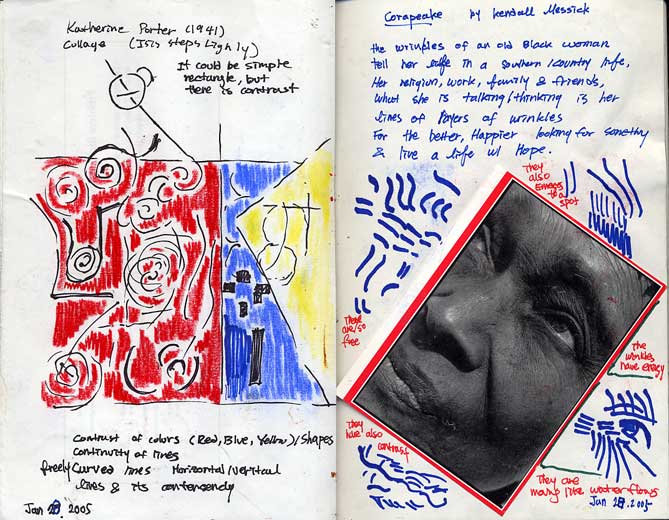 Katherine Porter (1941)
Collage (Isis steps Lightly)
It could be simple
rectangle, but
there is contrast
Contrast of colors (Red, Blue, Yellow)/Shapes
Continuity of lines
freely Curved lines Horizontal/vertical
lines & its
Jan 2005
Corapeake by Kendall Messick
The wrinkles of an old Black woman
tell her life in a southern/country life,
Her religion, work, family & friends,
What she is talking/thinking is her
lines of layers of wrinkles
For the better, Happier looking for
& live a life w/ Hope.
They
also
to a
spot
These
are so
free
The
wrinkles
have energy
They
have also
contrast
They are
moving like water flows
Jan .2005